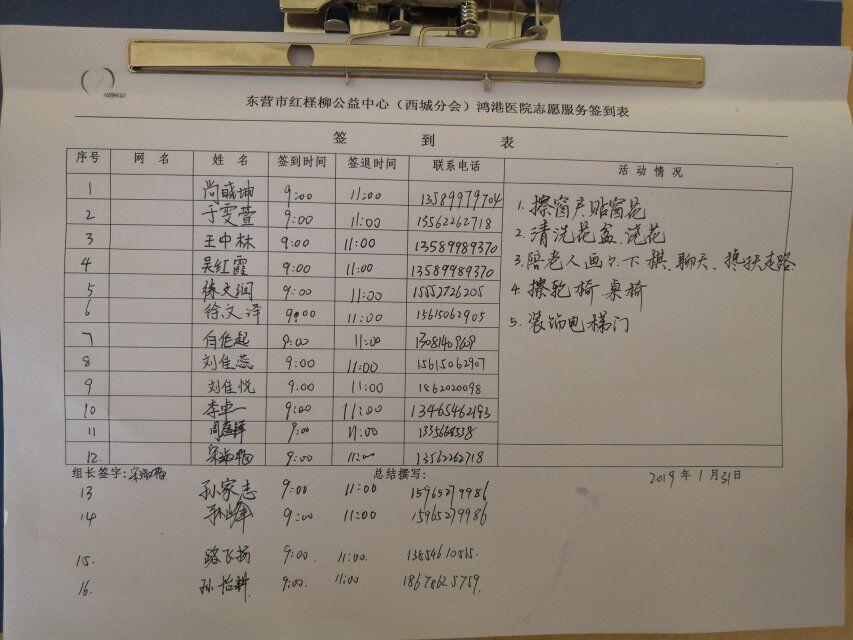 东营市红柽柳公益中心（西城分会）鸿港医院志愿服务签到表
签 到 表
序号 网 名 姓 名 签到时间 签退时间 联系电话 活 动 情 况
1 尚晓坤 9:00 11:00 13589979704
2 于雯萱 9:00 11:00 13562262718
3 王中林 9:00 11:00 13589989370
4 吴红霞 9:00 11:00 13589989370
5 徐文润 9:00 11:00 15552726205
6 徐文泽 9:00 11:00 15615062905
7 9:00 11:00
8 刘佳蕊 9:00 11:00 15615062907
9 刘佳悦 9:00 11:00 1862020098
10 李卓一 9:00 11:00 13465462193
11 9:00 11:00
12. 9:00 11:00 13562262718
1. 擦窗户.贴窗花
2. 清洗花盆、浇花
3. 陪老人画画.下棋、聊天、搀扶走路
4. 擦轮椅.桌椅
5. 装饰电梯门
组长签字: 总结撰写: 2019年1月31日
13 孙家志 9:00 11:00 15965279986
14 孙峰 9:00 11:00 15965279986
15. 路飞扬 9:00. 11:00. 13854610515.
16. 孙怡耕 9:00. 11:00 18678625759.